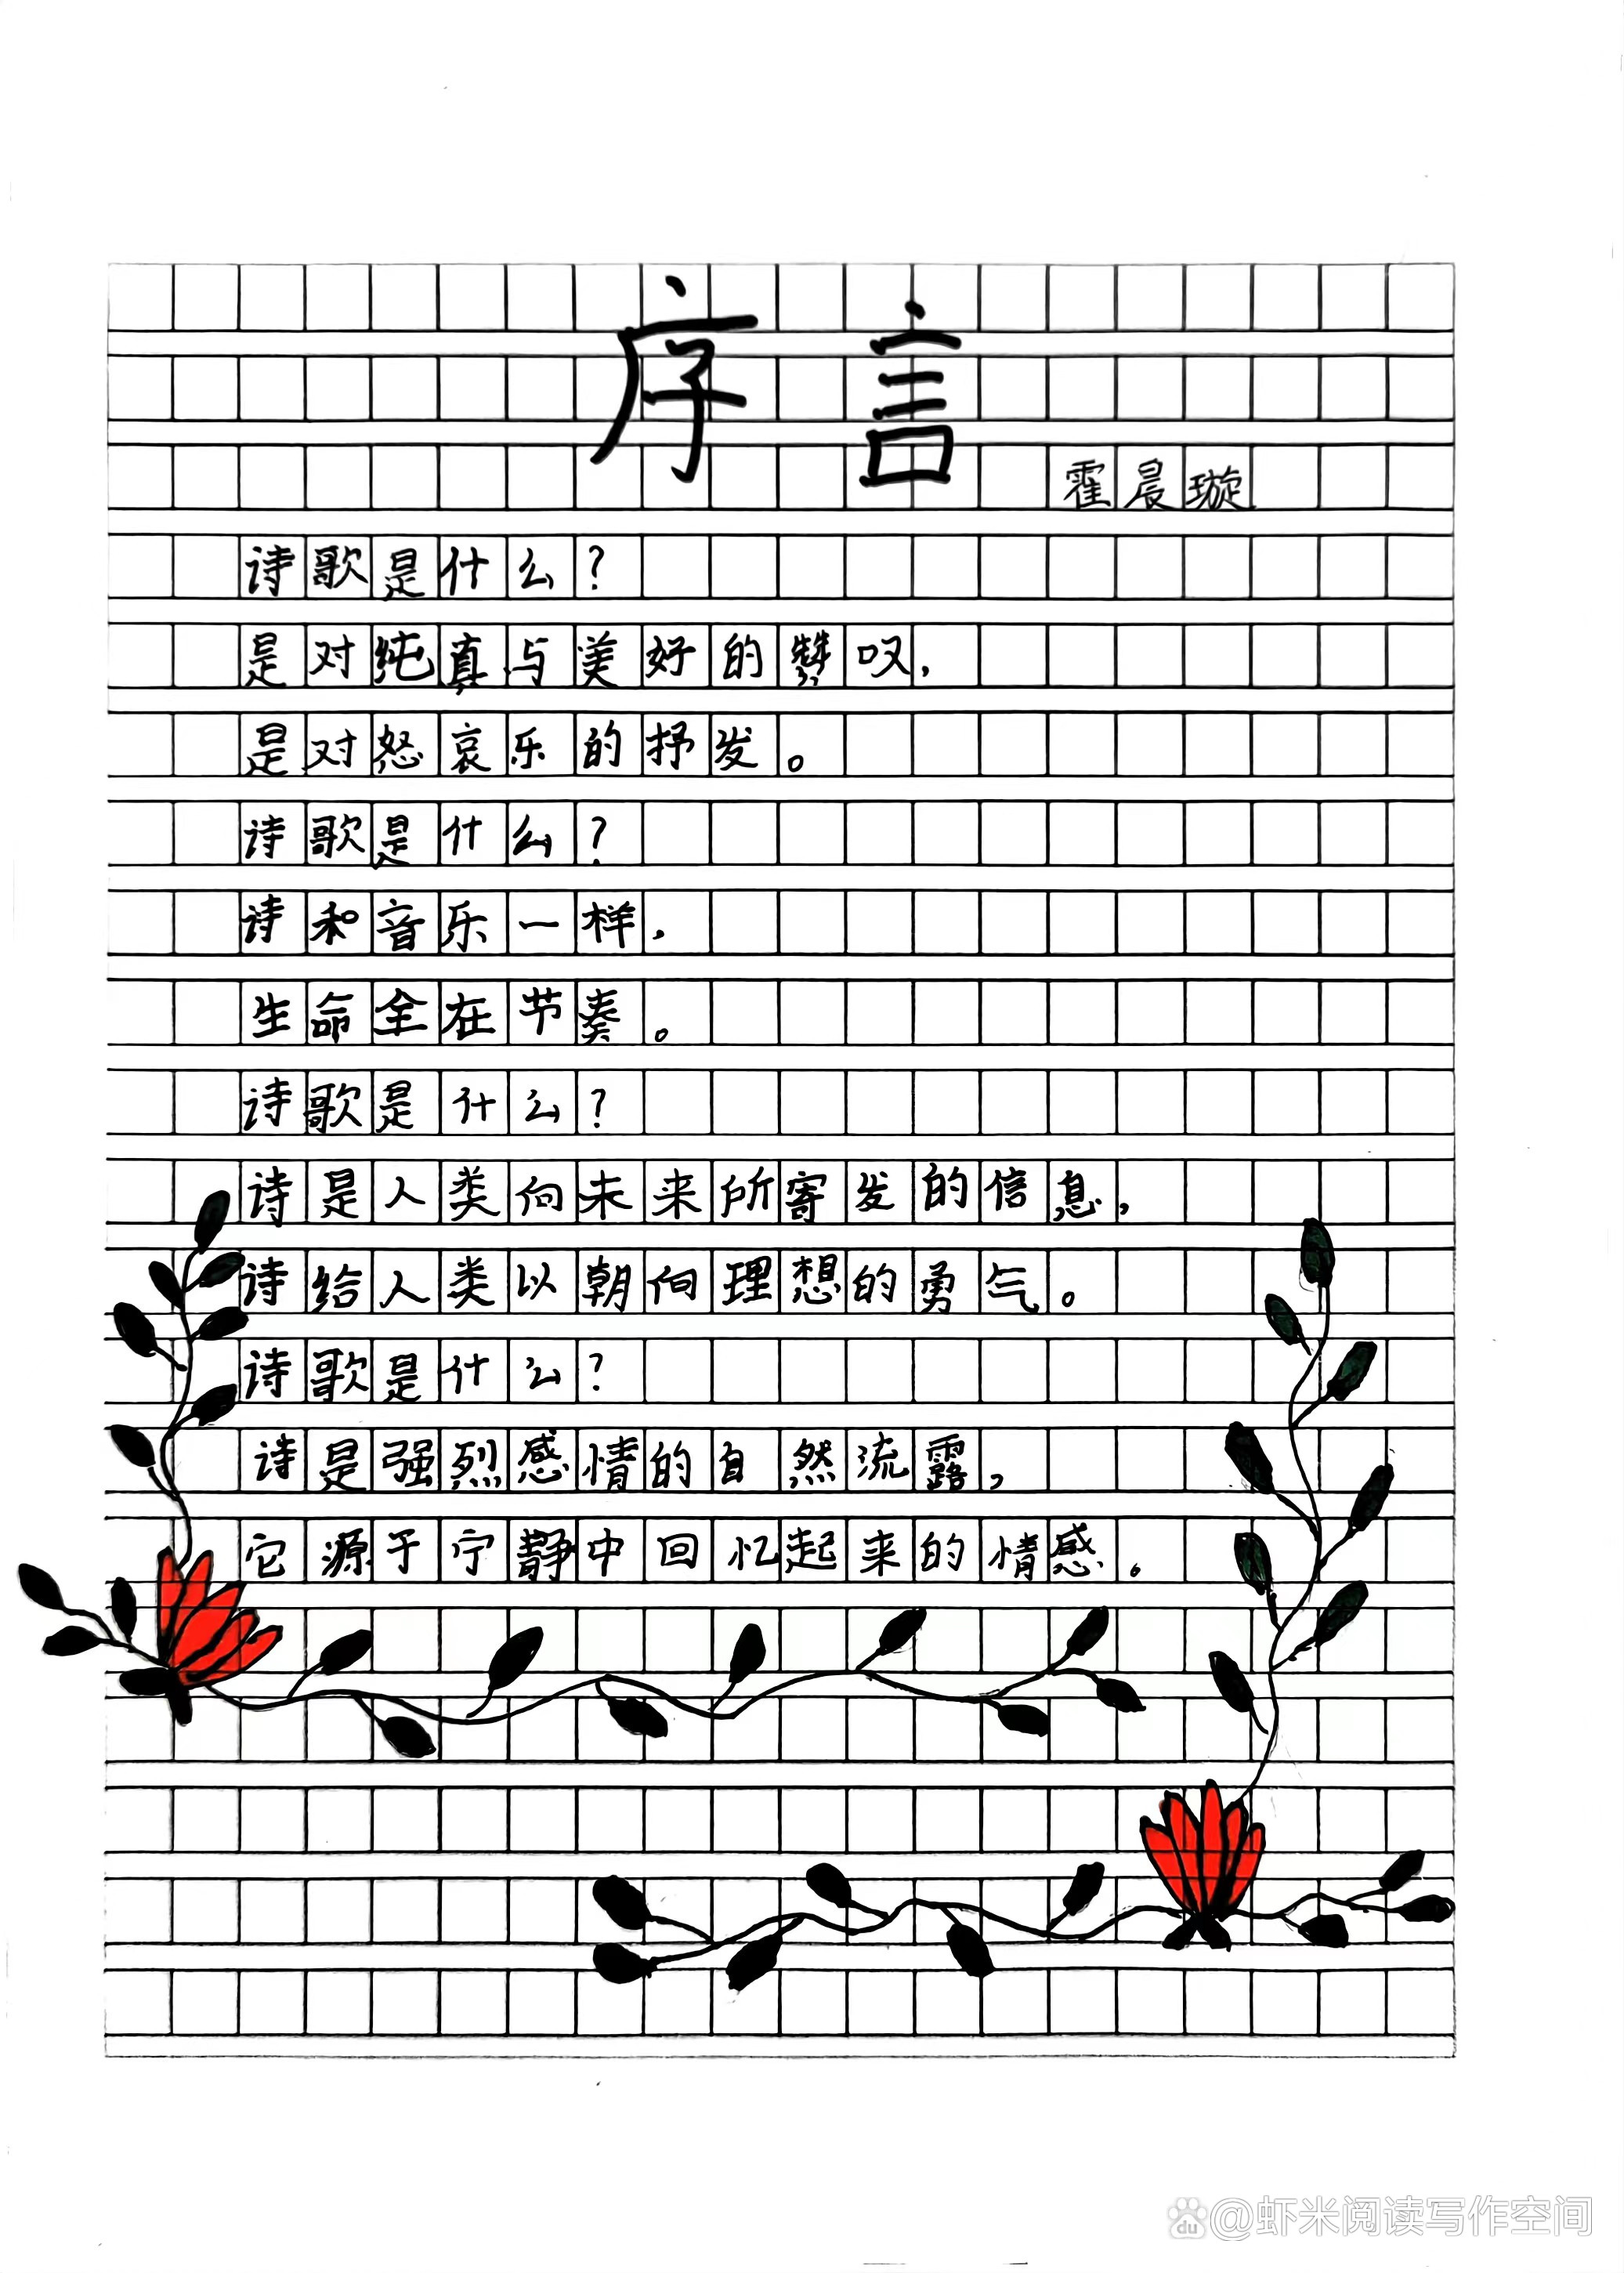 序言
霍晨璇
诗歌是什么？
是对纯真与美好的赞叹，
是对怒哀乐的抒发。
诗歌是什么？
诗和音乐一样，
生命全在节奏。
诗歌是什么？
诗是人类向未来所寄发的信息，
诗给人类以朝向理想的勇气。
诗歌是什么？
诗是强烈感情的自然流露，
它源于宁静中回忆起来的情感。
du @虾米阅读写作空间